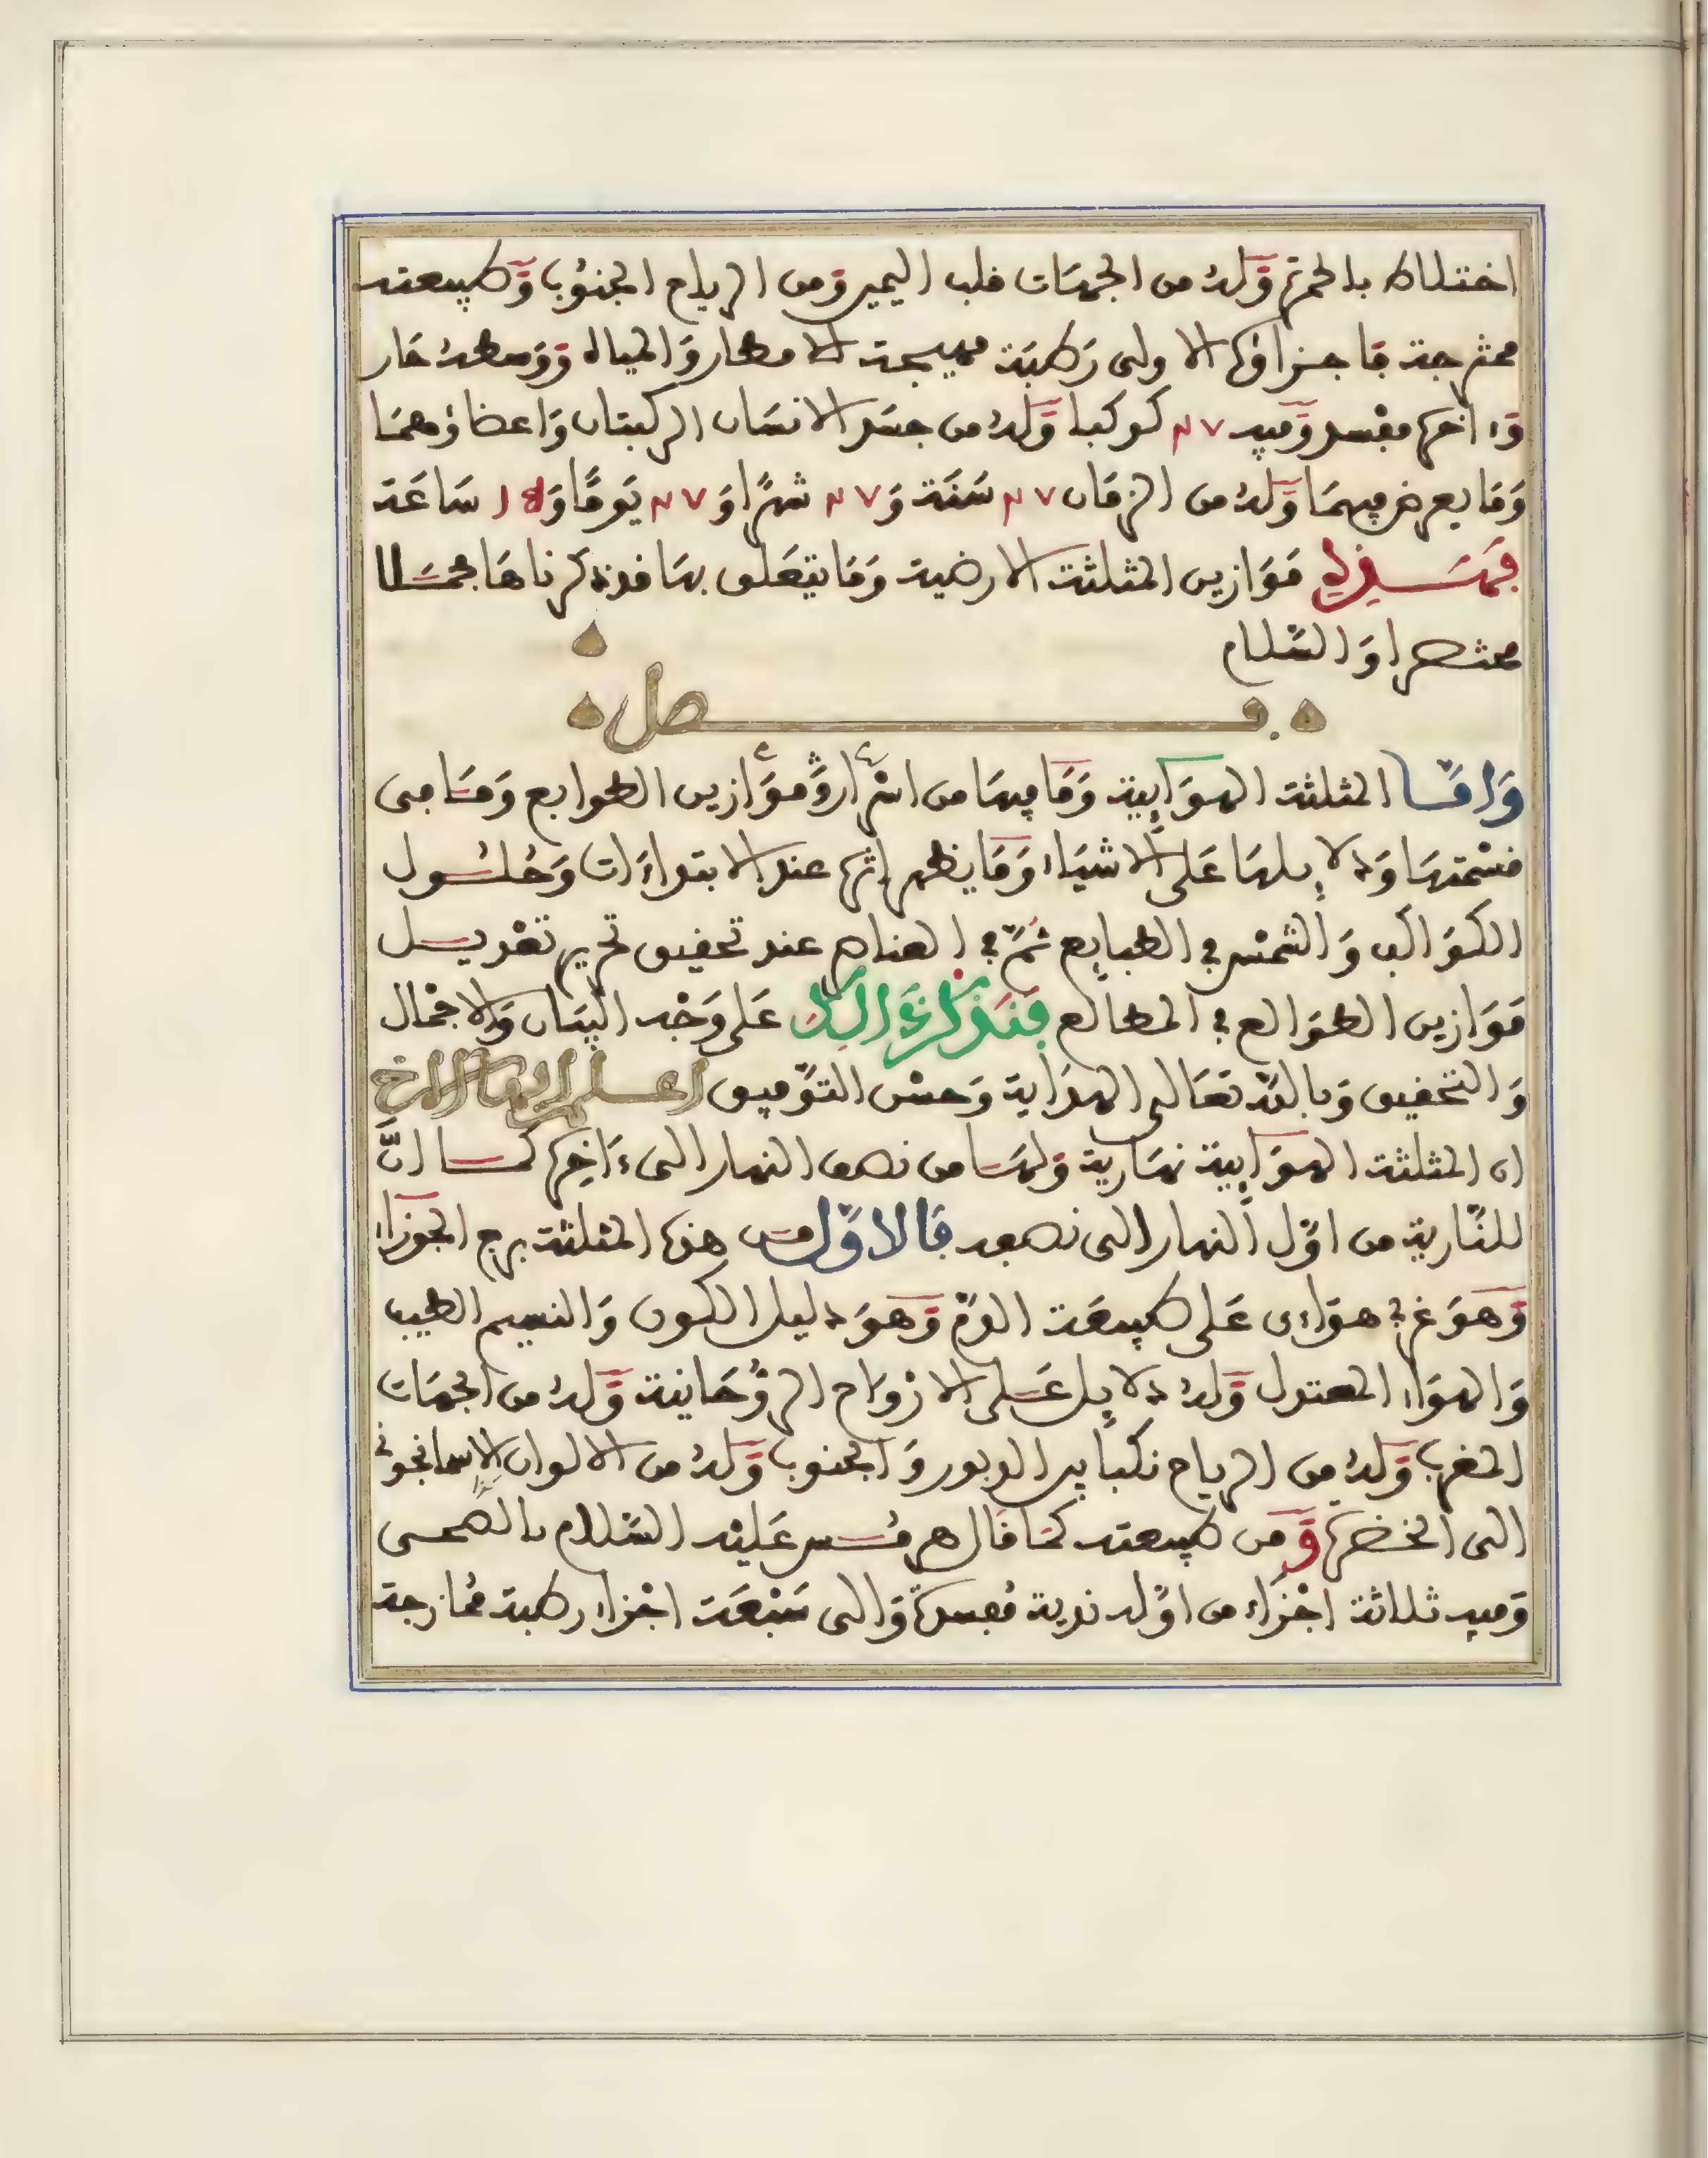 اختلاط بالحمرة وله من الجهات قلب اليمين ومن الرياح الجنوب وطبيعته
ممتزجة فاجزاؤه الاولى رطبة مهيجة للامطار والمياه ووسطه حار
وءاخره مفسد وفيه ٧ ٢ كوكبا وله من جسد الانسان الركبتان واعضاؤهما
وما يعرض فيهما وله من الزمان ٧ ٢ سنة و ٧ ٢ شهرا و ٧ ٢ يوما و ساعة
فهذه موازين المثلثة الارضية وما يتعلق بها قد ذكرناها مجملا
مختصرا والسلام
فصل
واما المثلثة الهوايية وما فيها من اسرار وموازين الطوابع وما في
قسمتها ودلايلها على الاشياء وما يظهر اثره عند الابتداءات وحلول
الكواكب والشمس في الطبايع ثم في العناصر عند تحقيق تحرير تعديل
موازين الطوالع في المطالع فنذكر ذلك على وجه البيان والاجمال
والتحقيق وبالله تعالى الهداية وحسن التوفيق اعلم ايها الاخ
ان المثلثة الهوايية نهارية ولها من نصف النهار الى ءاخره كما ان
للنارية من اول النهار الى نصفه فالاول من هذه المثلثة برج الجوزاء
وهو غربي هواءى على طبيعة الدم وهو دليل الكون والنسيم الطيب
والهواء المعتدل وله دلايل على الارواح الروحانية وله من الجهات
المغرب وله من الرياح نكبا بين الدبور والجنوب وله من الالوان الاسمانجوني
الى الخضرة ومن طبيعته كما قال هرمس عليه السلام بالصحى
وفيه ثلاثة اجزاء من اوله ندية مفسدة والى سبعة اجزاء رطبة ممازجة